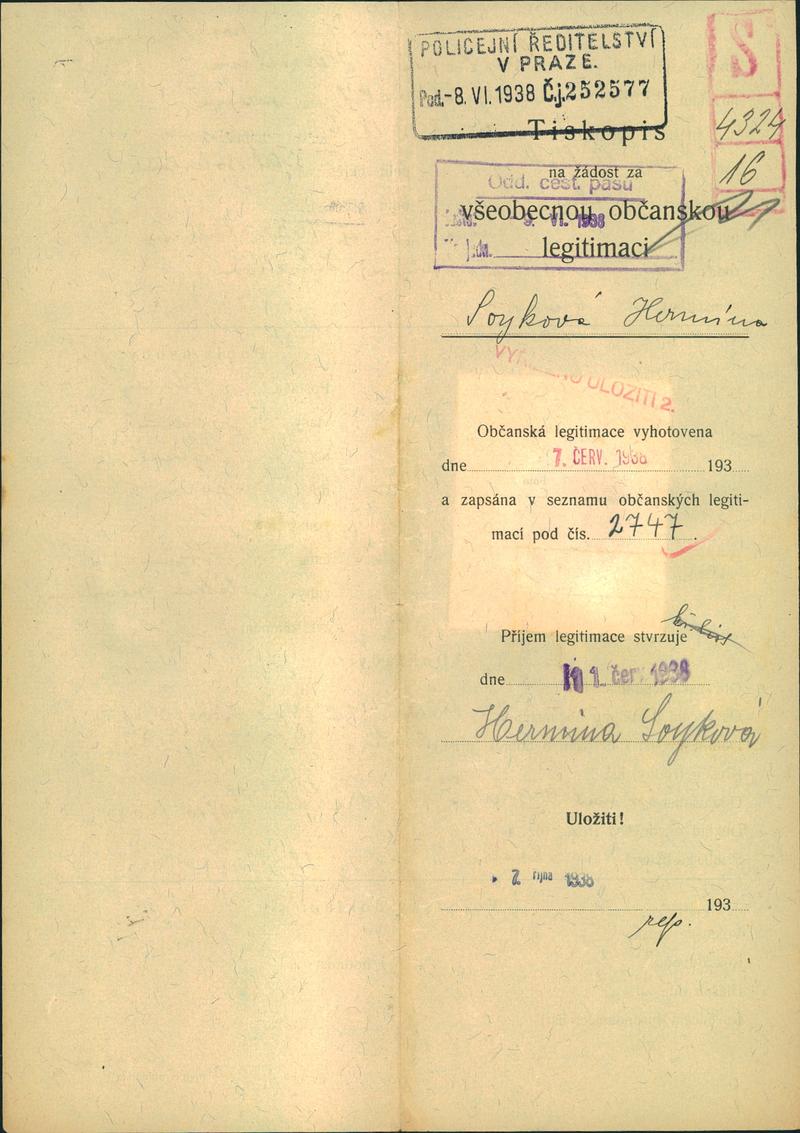 POLICEJNÍ ŘEDITELSTVÍ
V PRAZE.
Pod. -8. VI. 1938 Č.j. 252577
S
4324
16
Tiskopis
na žádost za
Odd. cest. pasů
všeobecnou občanskou
VI. 1938
legitimaci
Soyková Hermína
ULOŽITI 2.
Občanská legitimace vyhotovena
dne 7. ČERV. 1938 193
a zapsána v seznamu občanských legiti-
mací pod čís. 2747.
Příjem legitimace stvrzuje
dne 1. čer. 1938
Hermina Soyková
Uložiti!
7. října 1938
193